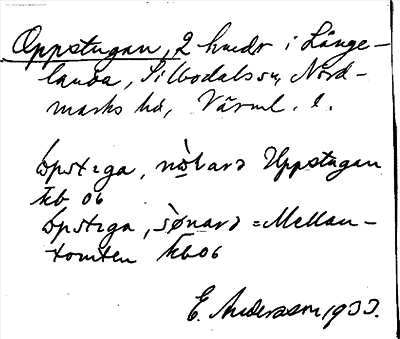 Oppstugan, 2 hmdr i Långe-
landa, Silbodals sn, Nord-
marks hd, Värml. l.
åpstɛga, Uppstugan
kb 06
åpstɛga, = Mellan-
tomten kb 06
E. Andersson 1933.